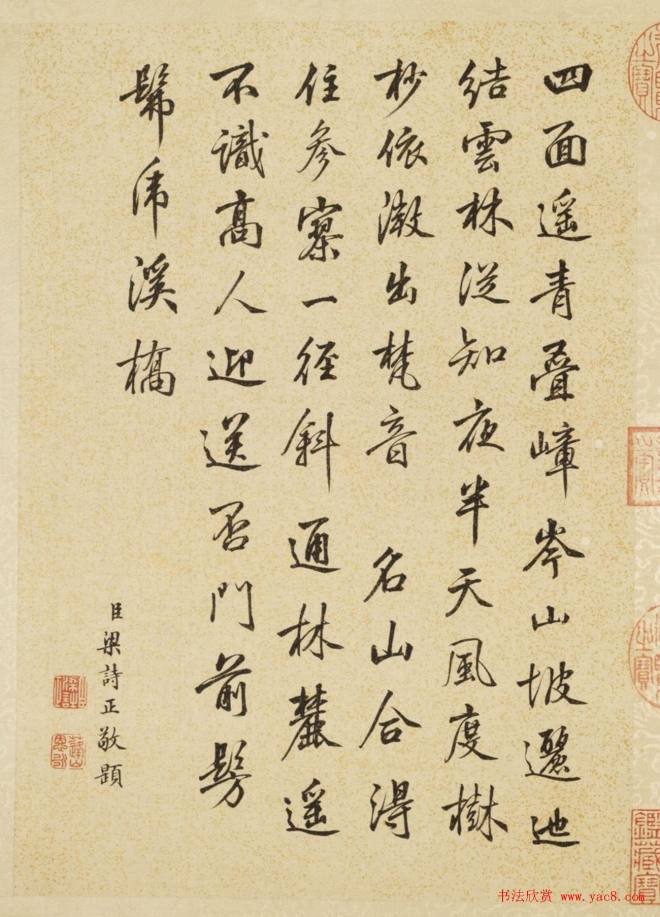 四面遥青叠嶂岑山坡邐迆
結雲林從知夜半天風度樹
杪依微出梵音 名山合得
住参寮一徑斜通林麓遥
不識高人迎送否門前髣
髴虎溪橋
臣梁詩正敬題
鑑藏寶
书法欣赏 www.yac8.com